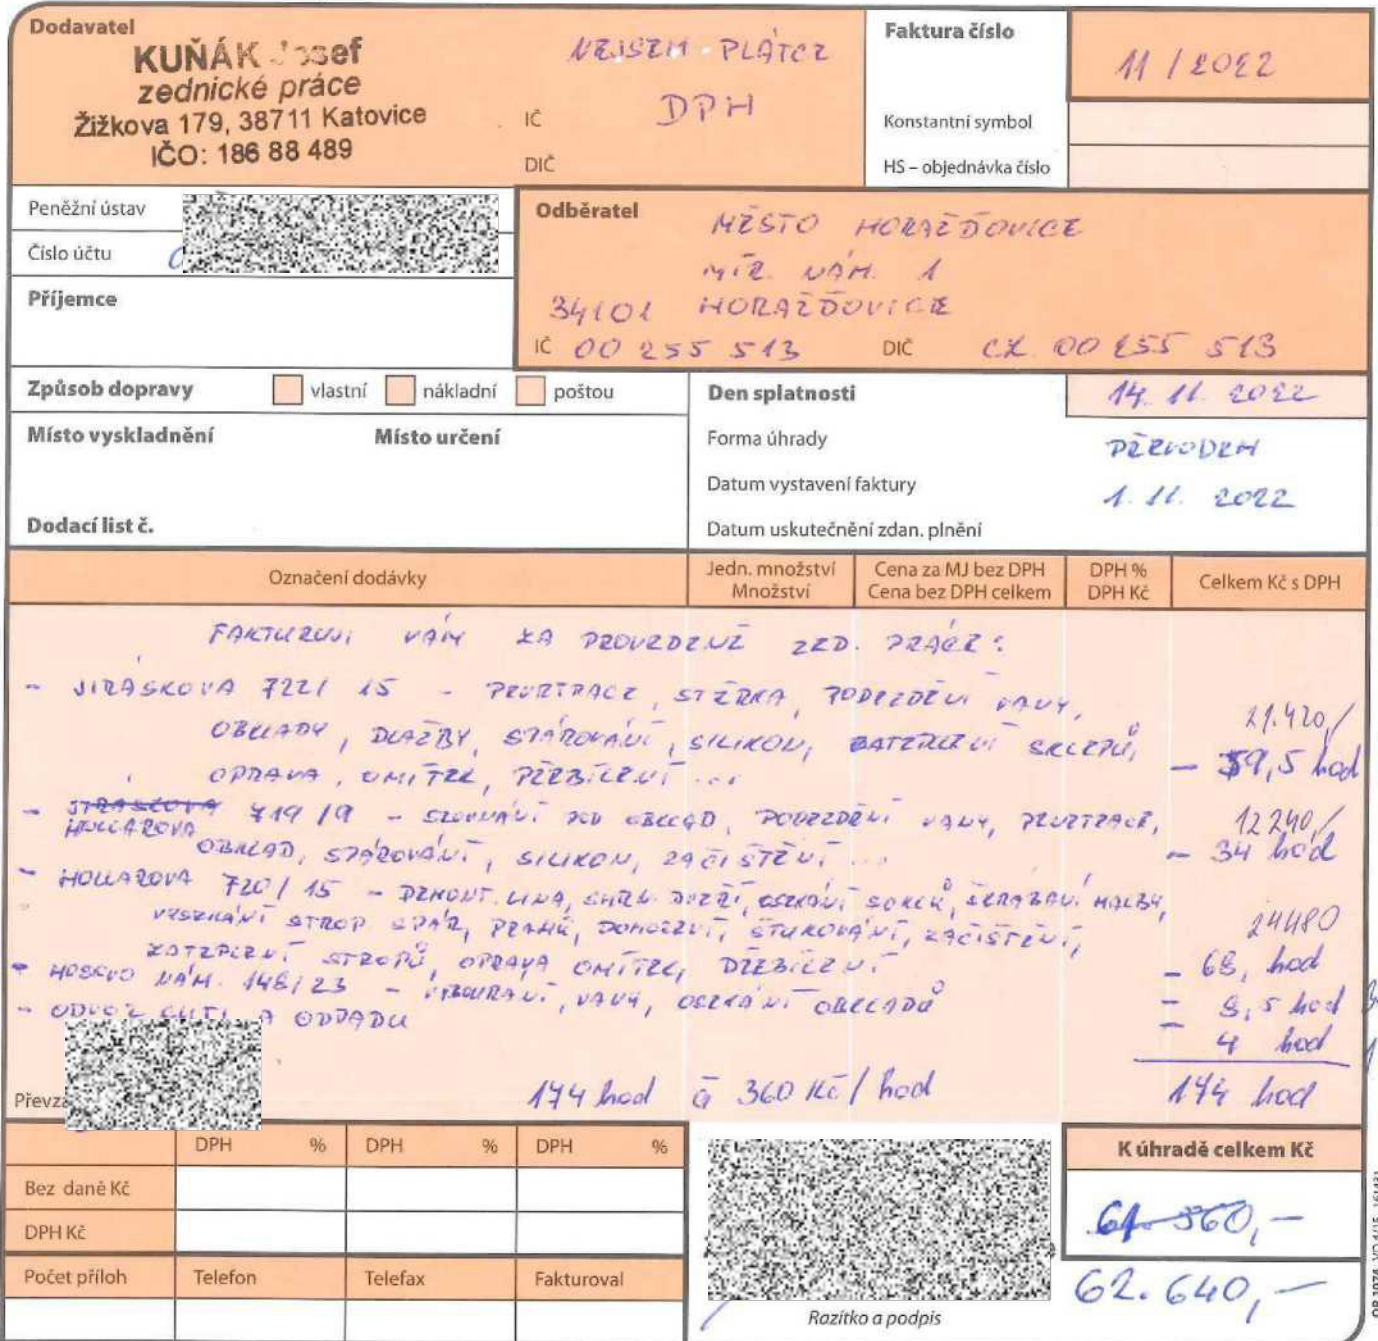 Dodavatel
KUŇÁK Josef
zednické práce
Žižkova 179, 38711 Katovice
IČO: 186 88 489
NEJSEM PLÁTCE
IČ DPH
DIČ
Faktura číslo 11 / 2022
Konstantní symbol
HS – objednávka číslo
Peněžní ústav
Číslo účtu
Příjemce
Odběratel MĚSTO HORAŽĎOVICE
MÍR. NÁM. 1
34101 HORAŽĎOVICE
IČ 00 255 513 DIČ CZ 00 255 513
Způsob dopravy vlastní nákladní poštou
Místo vyskladnění Místo určení
Dodací list č.
Den splatnosti 14. 11. 2022
Forma úhrady PŘEVODEM
Datum vystavení faktury 1. 11. 2022
Datum uskutečnění zdan. plnění
Označení dodávky
Jedn. množství
Množství
Cena za MJ bez DPH
Cena bez DPH celkem
DPH %
DPH Kč
Celkem Kč s DPH
FAKTURUJI VÁM ZA PROVEDENÉ ZED. PRÁCE:
- JIRÁSKOVA 722/ 15 - PENETRACE, STĚRKA, PODEZDĚNÍ VANY,
21.420/
OBKLADY, DLAŽBY, SPÁROVÁNÍ, SILIKON, ZATEPLENÍ SKLEPŮ,
- 59,5 hod
OPRAVA, OMÍTEK, PŘEBÍLENÍ ...
- JIRÁSKOVA 719 /9 - SROVNÁNÍ POD OBKLAD, PODEZDĚNÍ VANY, PENETRACE,
12240/
HOLLAROVA
OBKLAD, SPÁROVÁNÍ, SILIKON, ZAČIŠTĚNÍ ...
- 34 hod
- HOLLAROVA 720/ 15 - DEMONT. LINA, DVEŘÍ, OSEKÁNÍ SOKLŮ, ŠKRÁBÁNÍ MALBY,
24480
VYSEKÁNÍ STROP SPÁR, ŠTUKOVÁNÍ, ZAČIŠTĚNÍ,
ZATEPLENÍ STROPŮ, OPRAVA OMÍTEK, PŘEBÍLENÍ
- 68, hod
- NÁM. 148/23 - VYBOURÁNÍ, VANY, OSEKÁNÍ OBKLADŮ
- 8,5 hod
- ODVOZ SUTI A ODPADU
- 4 hod
Převza
174 hod á 360 Kč/ hod 174 hod
DPH % DPH % DPH %
Bez daně Kč
DPH Kč
Počet příloh Telefon Telefax Fakturoval
K úhradě celkem Kč
61 560,-
62.640,-
Razítko a podpis